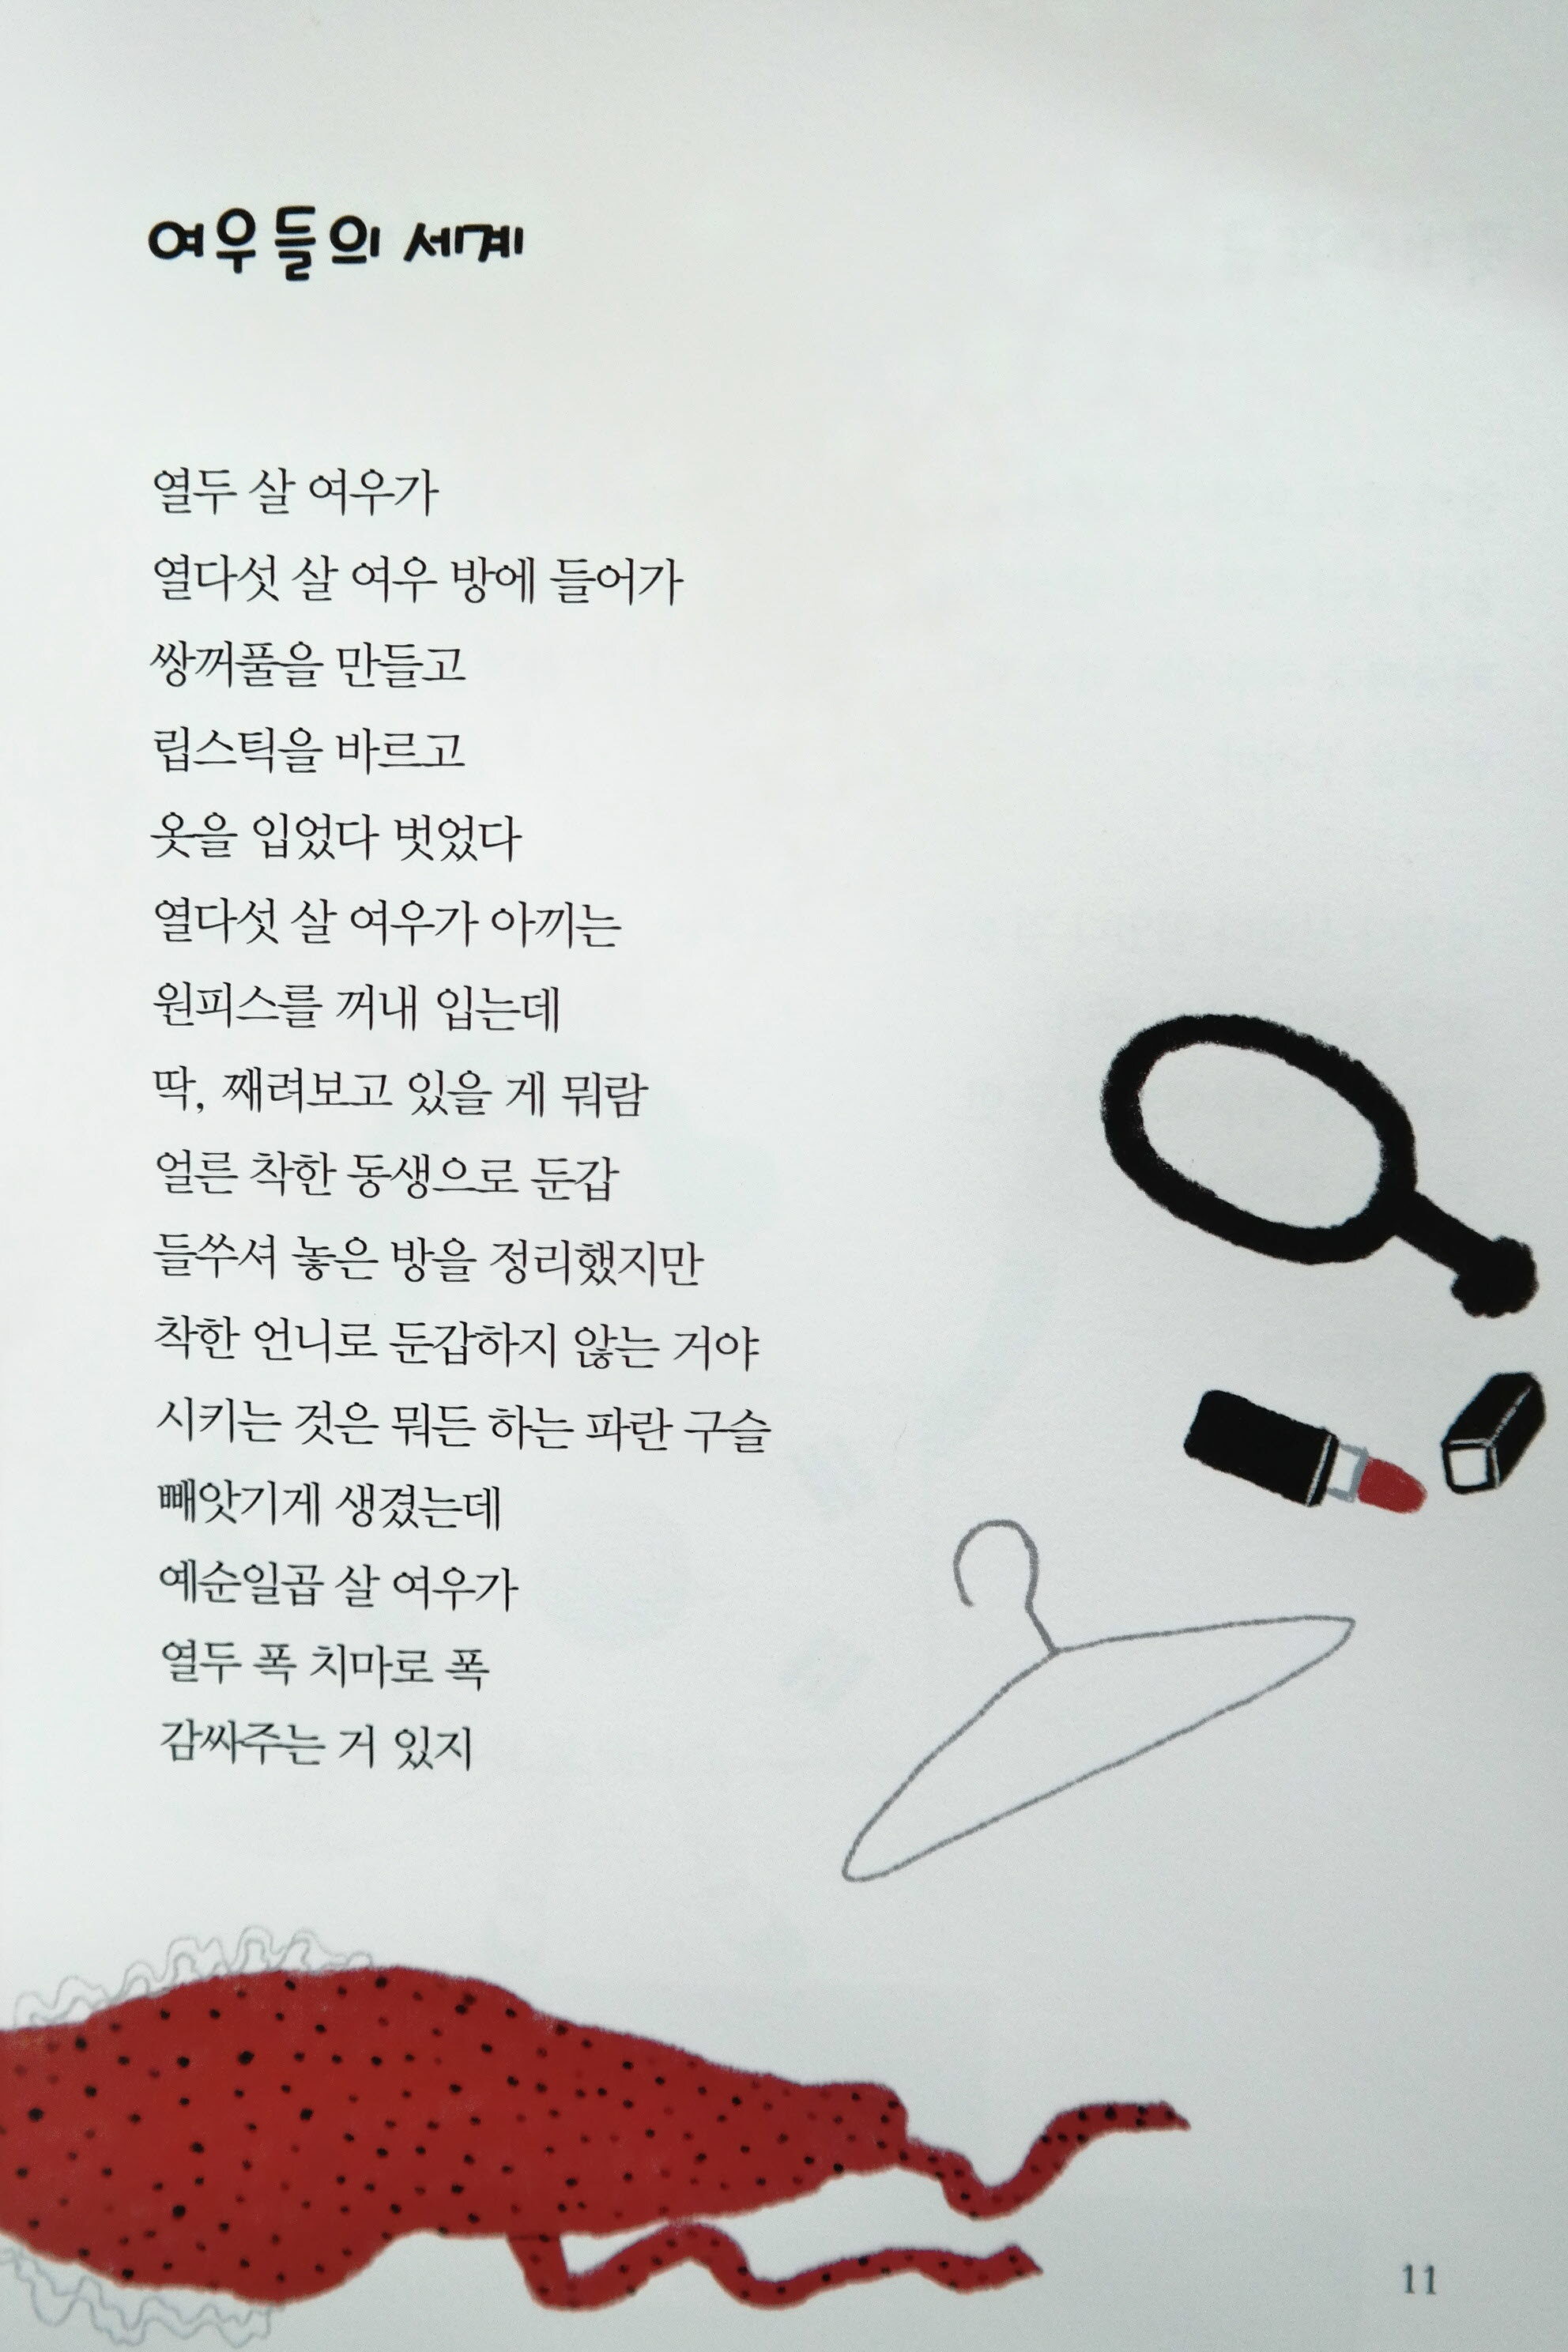 여우들의 세계
열두 살 여우가
열다섯 살 여우 방에 들어가
쌍꺼풀을 만들고
립스틱을 바르고
옷을 입었다 벗었다
열다섯 살 여우가 아끼는
원피스를 꺼내 입는데
딱, 째려보고 있을 게 뭐람
얼른 착한 동생으로 둔갑
들쑤셔 놓은 방을 정리했지만
착한 언니로 둔갑하지 않는 거야
시키는 것은 뭐든 하는 파란 구슬
빼앗기게 생겼는데
예순일곱 살 여우가
열두 폭 치마로 폭
감싸주는 거 있지
11